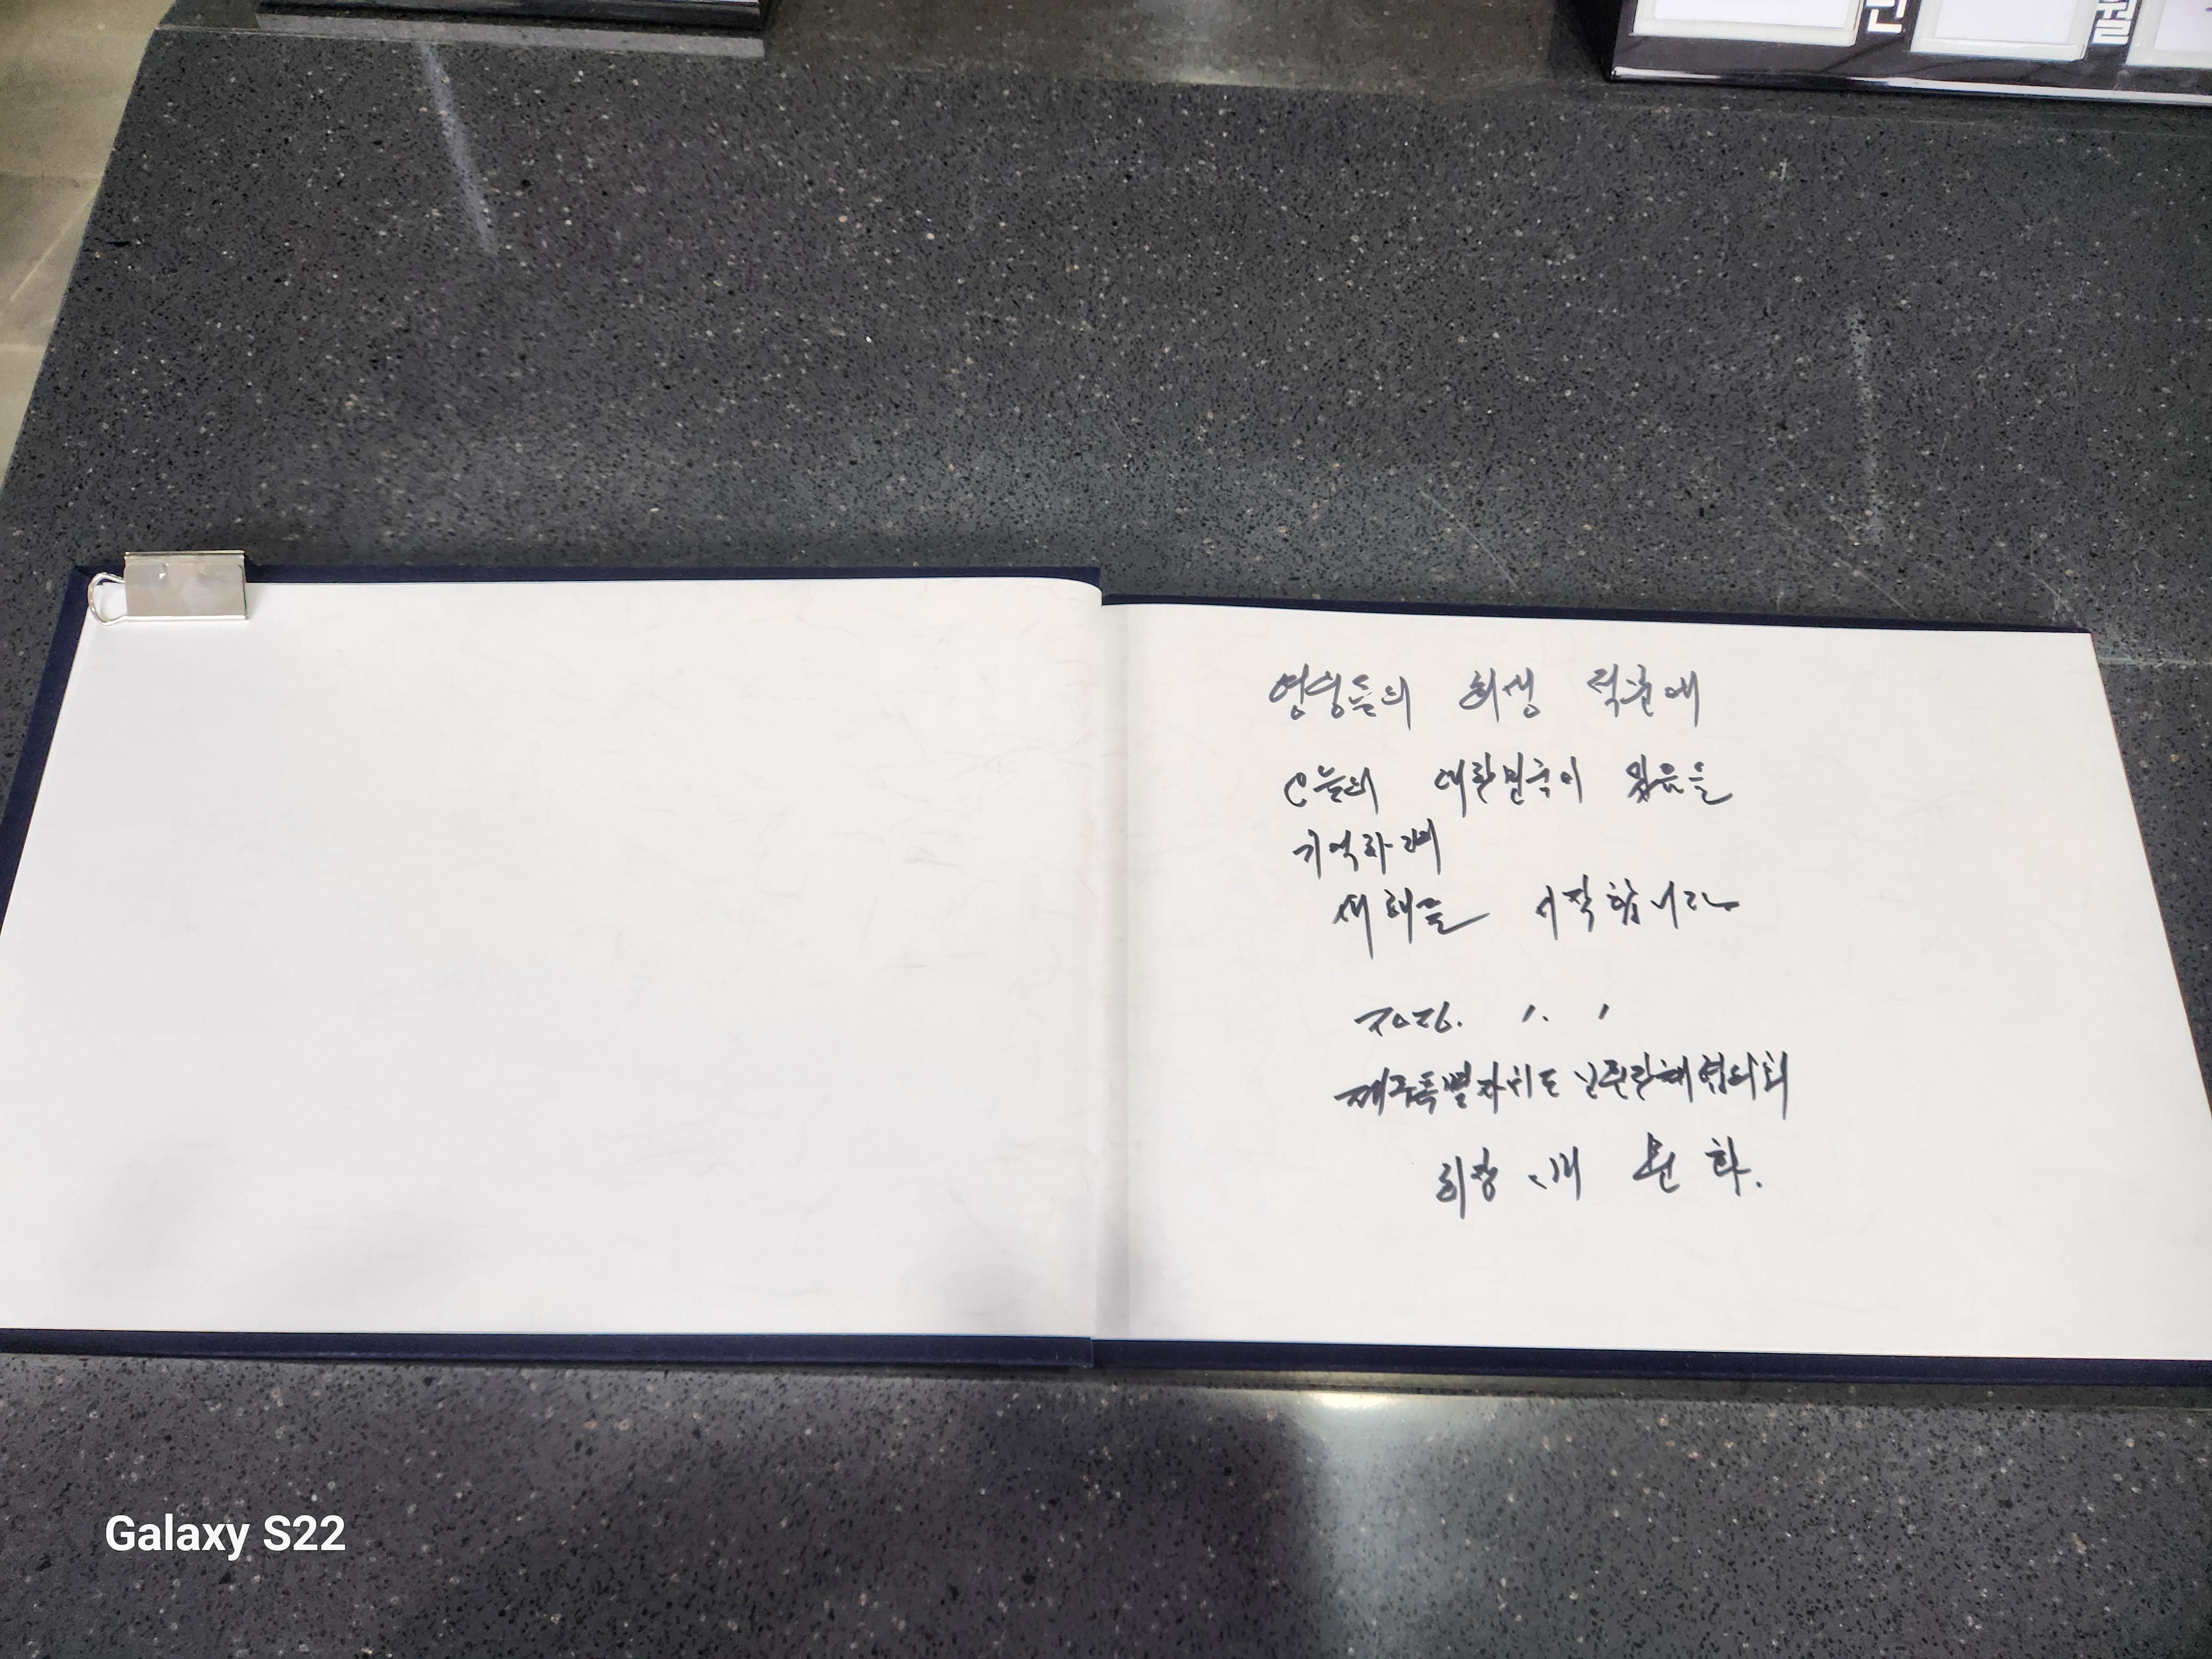 민 월
영령들의 희생 덕분에
오늘의 대한민국이 있음을
기억하며
새해를 시작합니다
2026. 1. 1
제주특별자치도 주민자치협의회
회장
Galaxy S22